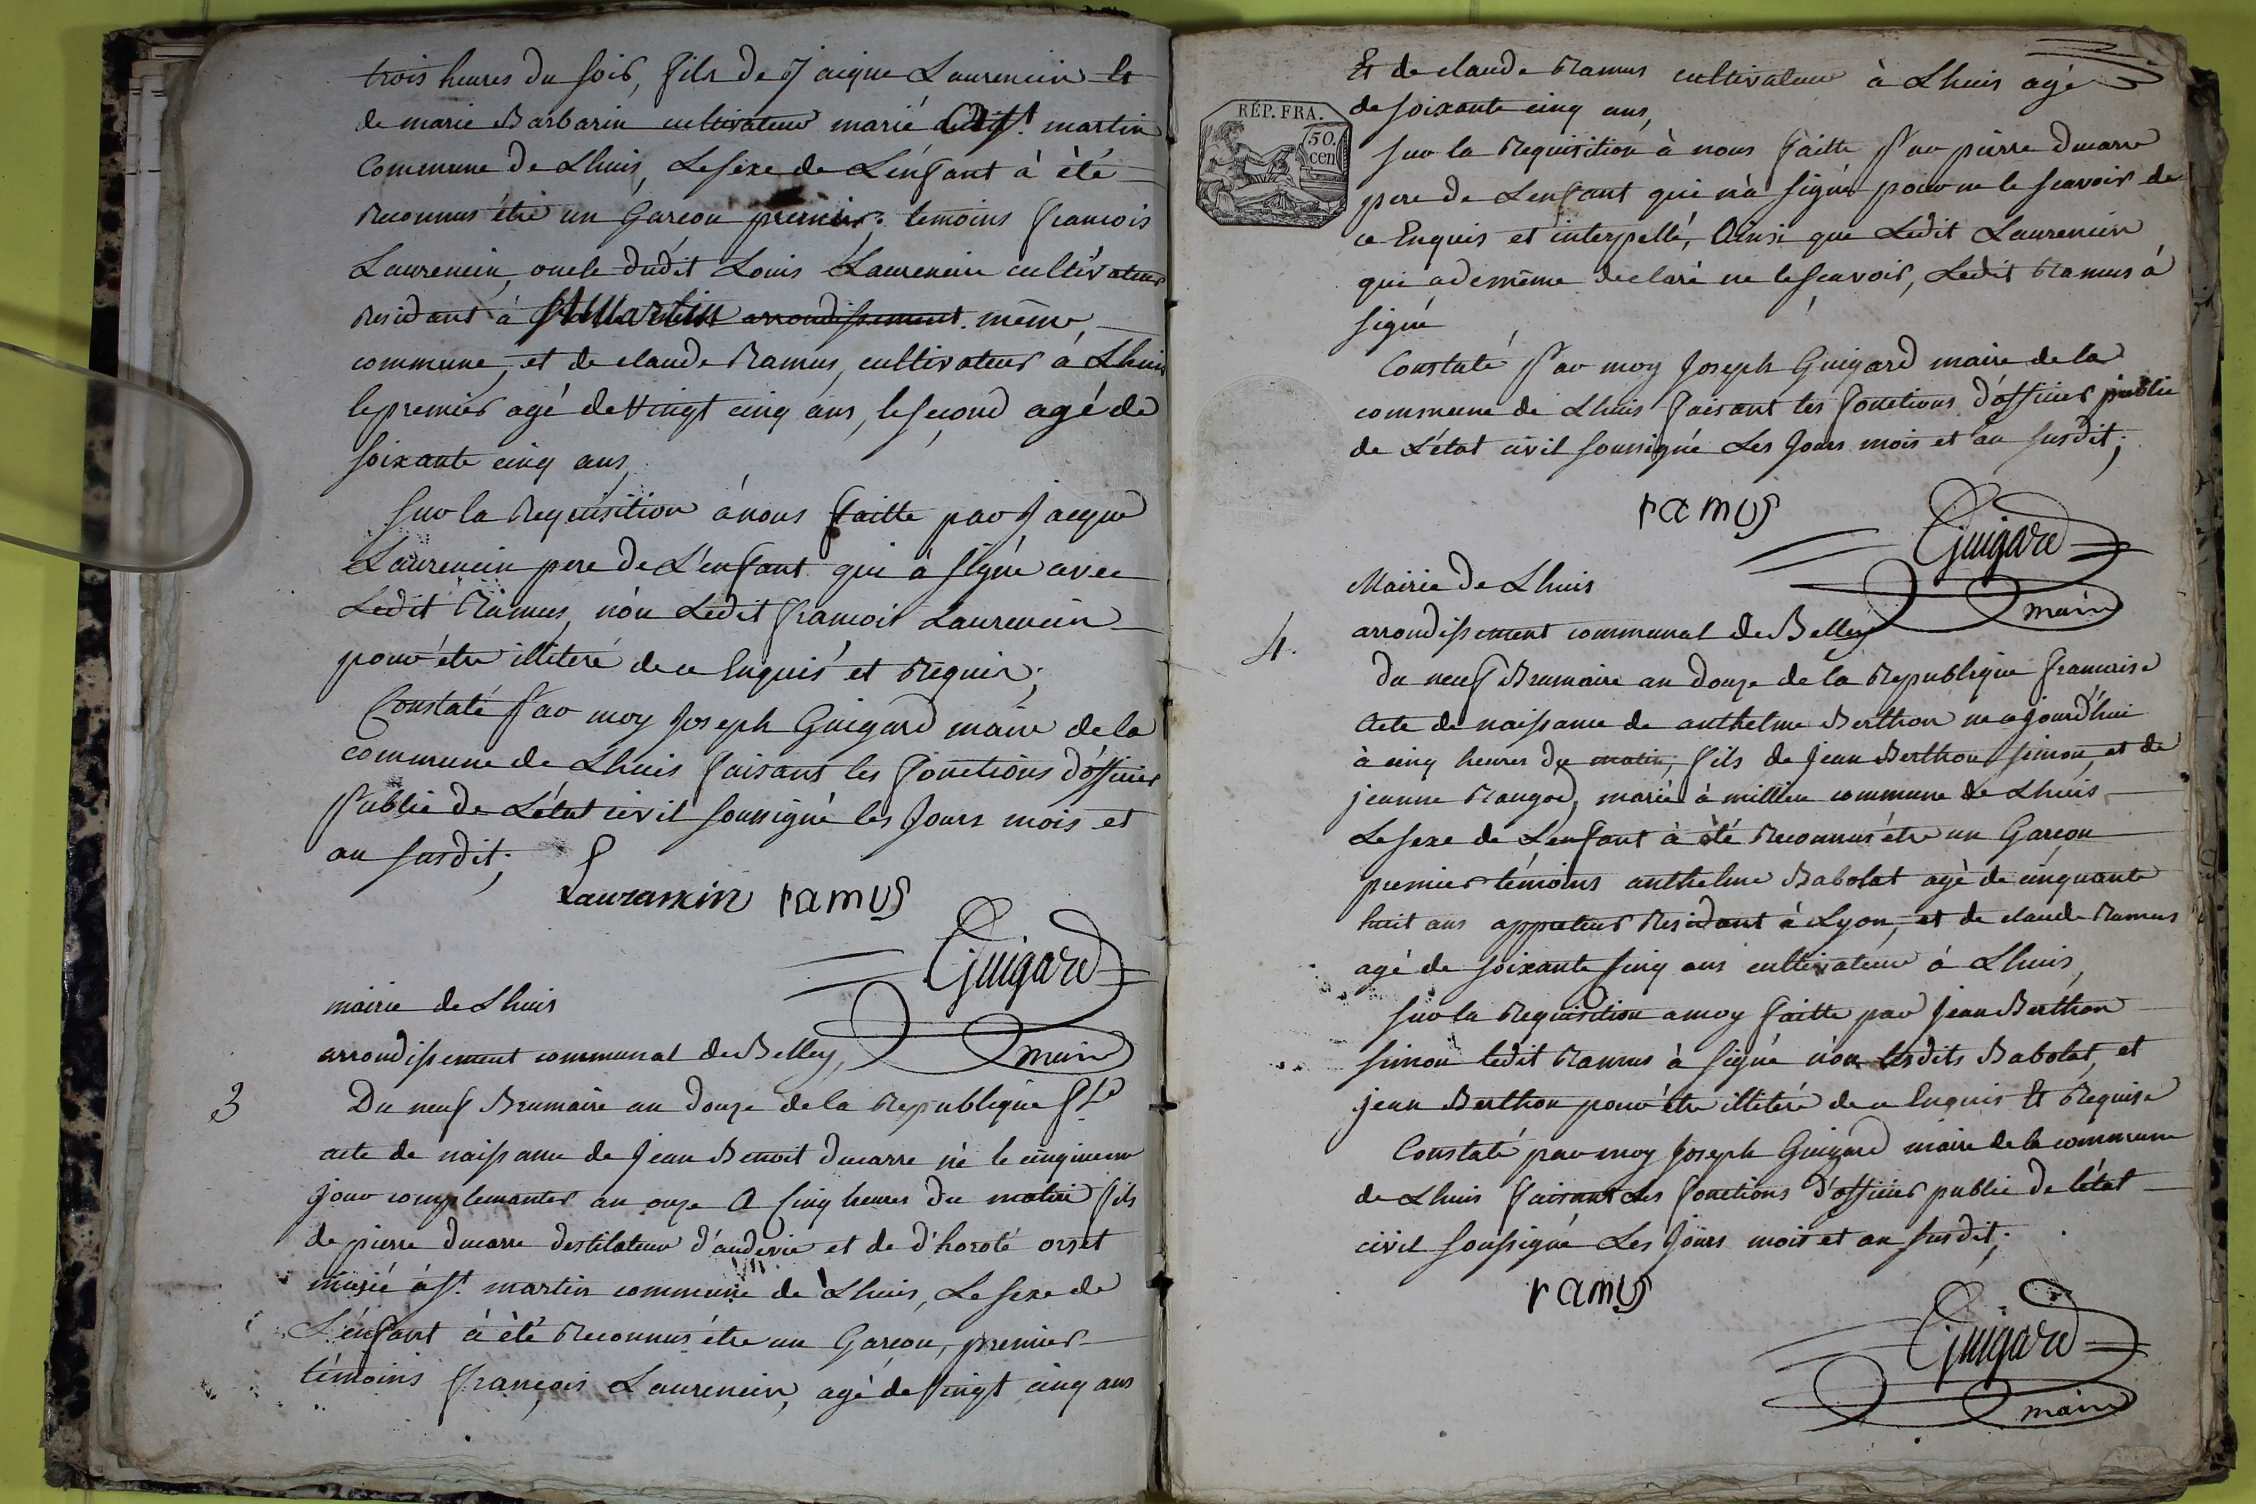 trois heures du soir, fils de Jaique Laurencin et
de marie Barbarin cultivateur marié audit St. martin
Commune de Lhuis, Le sexe de L'enfant à été
Reconnus être un Garcon premier temoins francois
Laurencin, oncle dudit Louis Laurencin cultivateur
Residant à St Martin arrondissement même
commune, et de claude Ramus, cultivateur à Lhuis
le premier agé de vingt cinq ans, le second agé de
soixante cinq ans,
Sur la Requisition à nous faitte par Jacque
Laurencin pere de L'enfant qui à signé avec
Ledit Ramus, nón Ledit francois Laurencin
pour être illiteré de ce Enquis et Requis;
Constaté Par moy Joseph Guigard maire de la
Commune de Lhuis faisant les fonctions d'officier
Public de L'état civil soussigné les Jours mois et
an susdit;
Lauransin ramus
Guigard
maire
mairie de Lhuis
arrondissement communal de Belley,
3
Du neuf Brumaire an douze de la Republique fse
acte de naissance de Jean Benoit ducarre né le cinquieme
jour complemanter an onze a cinq heures du matin fils
de pierre ducarre destilateur d'audevie et de d'horoté orset
marié à St. martin commune de Lhuis, Le sexe de
L'enfant à été Reconnus être un Garcon, premier
témoins françois Laurencin, agé de vingt cinq ans
RÉP. FRA.
50.
cen
Et de claude Ramus cultivateur à Lhuis agé
de soixante cinq ans,
Sur la Requisition à nous faitte Par pierre ducarre
pere de L'enfant qui n'a signé pour ne le scavoir de
ce Enquis et interpellé, Ainsi que Ledit Laurencin
qui a de même declaré ne le scavoir, Ledit Ramus à
signé
Constaté Par moy Joseph Guigard maire de la
commune de Lhuis faisant les fonctions d'officier public
de L'état civil soussigné Les Jours mois et an susdit;
ramus
Guigard
maire
Mairie de Lhuis
4.
arrondissement communal de Belley
Du neuf Brumaire an douze de la Republique francaise
Acte de naissance de anthelme Berthon ne ajourd'hui
à cinq heures du matin, fils de Jean Berthon simon, et de
jeanne Raugod, marié à millieu commune de Lhuis
Le sexe de L'enfant à été Reconnus être un Garcon
premier témoins anthelme Babolat agé de cinquante
huit ans appreteur Residant à Lyon, et de claude Ramus
agé de soixante sinq ans cultivateur à Lhuis,
Sur la Requisition a moy faitte par Jean Berthon
simon ledit Ramus à signé nón lesdits Babolat, et
jean Berthon pour être illiteré de ce Enquis Et Requise
Constaté par moy Joseph Guigard maire de la commune
de Lhuis faisant Les fonctions d'officier public de létat
civil soussigné Les Jours mois et an susdit;
ramus
Guigard
maire